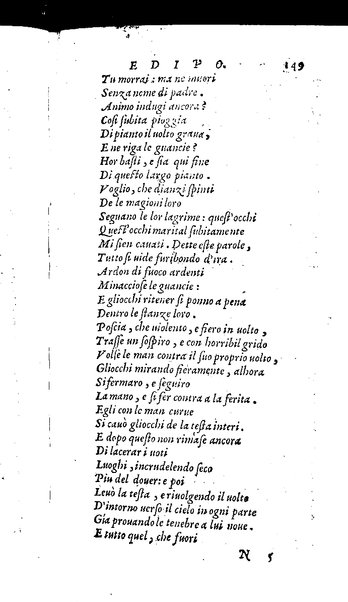 EDIPO. 149
Tu morrai: ma ne muori
Senza neme di padre.
Animo indugi ancora?
Cosi subita pioggia
Di pianto il uolto graua,
E ne riga le guancie?
Hor basti, e sia qui fine
Di questo largo pianto.
Voglio, che dianzi spinti
De le magioni loro
Seguano le lor lagrime: quest'occhi
Quest'occhi marital subitamente
Mi sien cauati. Dette este parole,
Tutto si uide furibondo d'ira.
Ardon di fuoco ardenti
Minacciose le guancie:
E gliocchi ritener si ponno a pena
Dentro le stanze loro.
Poscia, che uiolento, e fiero in uolto,
Trasse un sospiro, e con horribil grido
Volse le man contra il suo proprio uolto,
Gliocchi mirando fieramente, alhora
Si fermaro, e seguiro
La mano, e si fer contra a la ferita.
Egli con le man curue
Si cauò gliocchi de la testa interi.
E dopo questo non rimase ancora
Di lacerar i uoti
Luoghi, incrudelendo seco
Piu del douer: e poi
Leuò la testa, e riuolgendo il uolto
D'intorno uerso il cielo in ogni parte
Gia prouando le tenebre a lui noue.
E tutto quel, che fuori
N 5